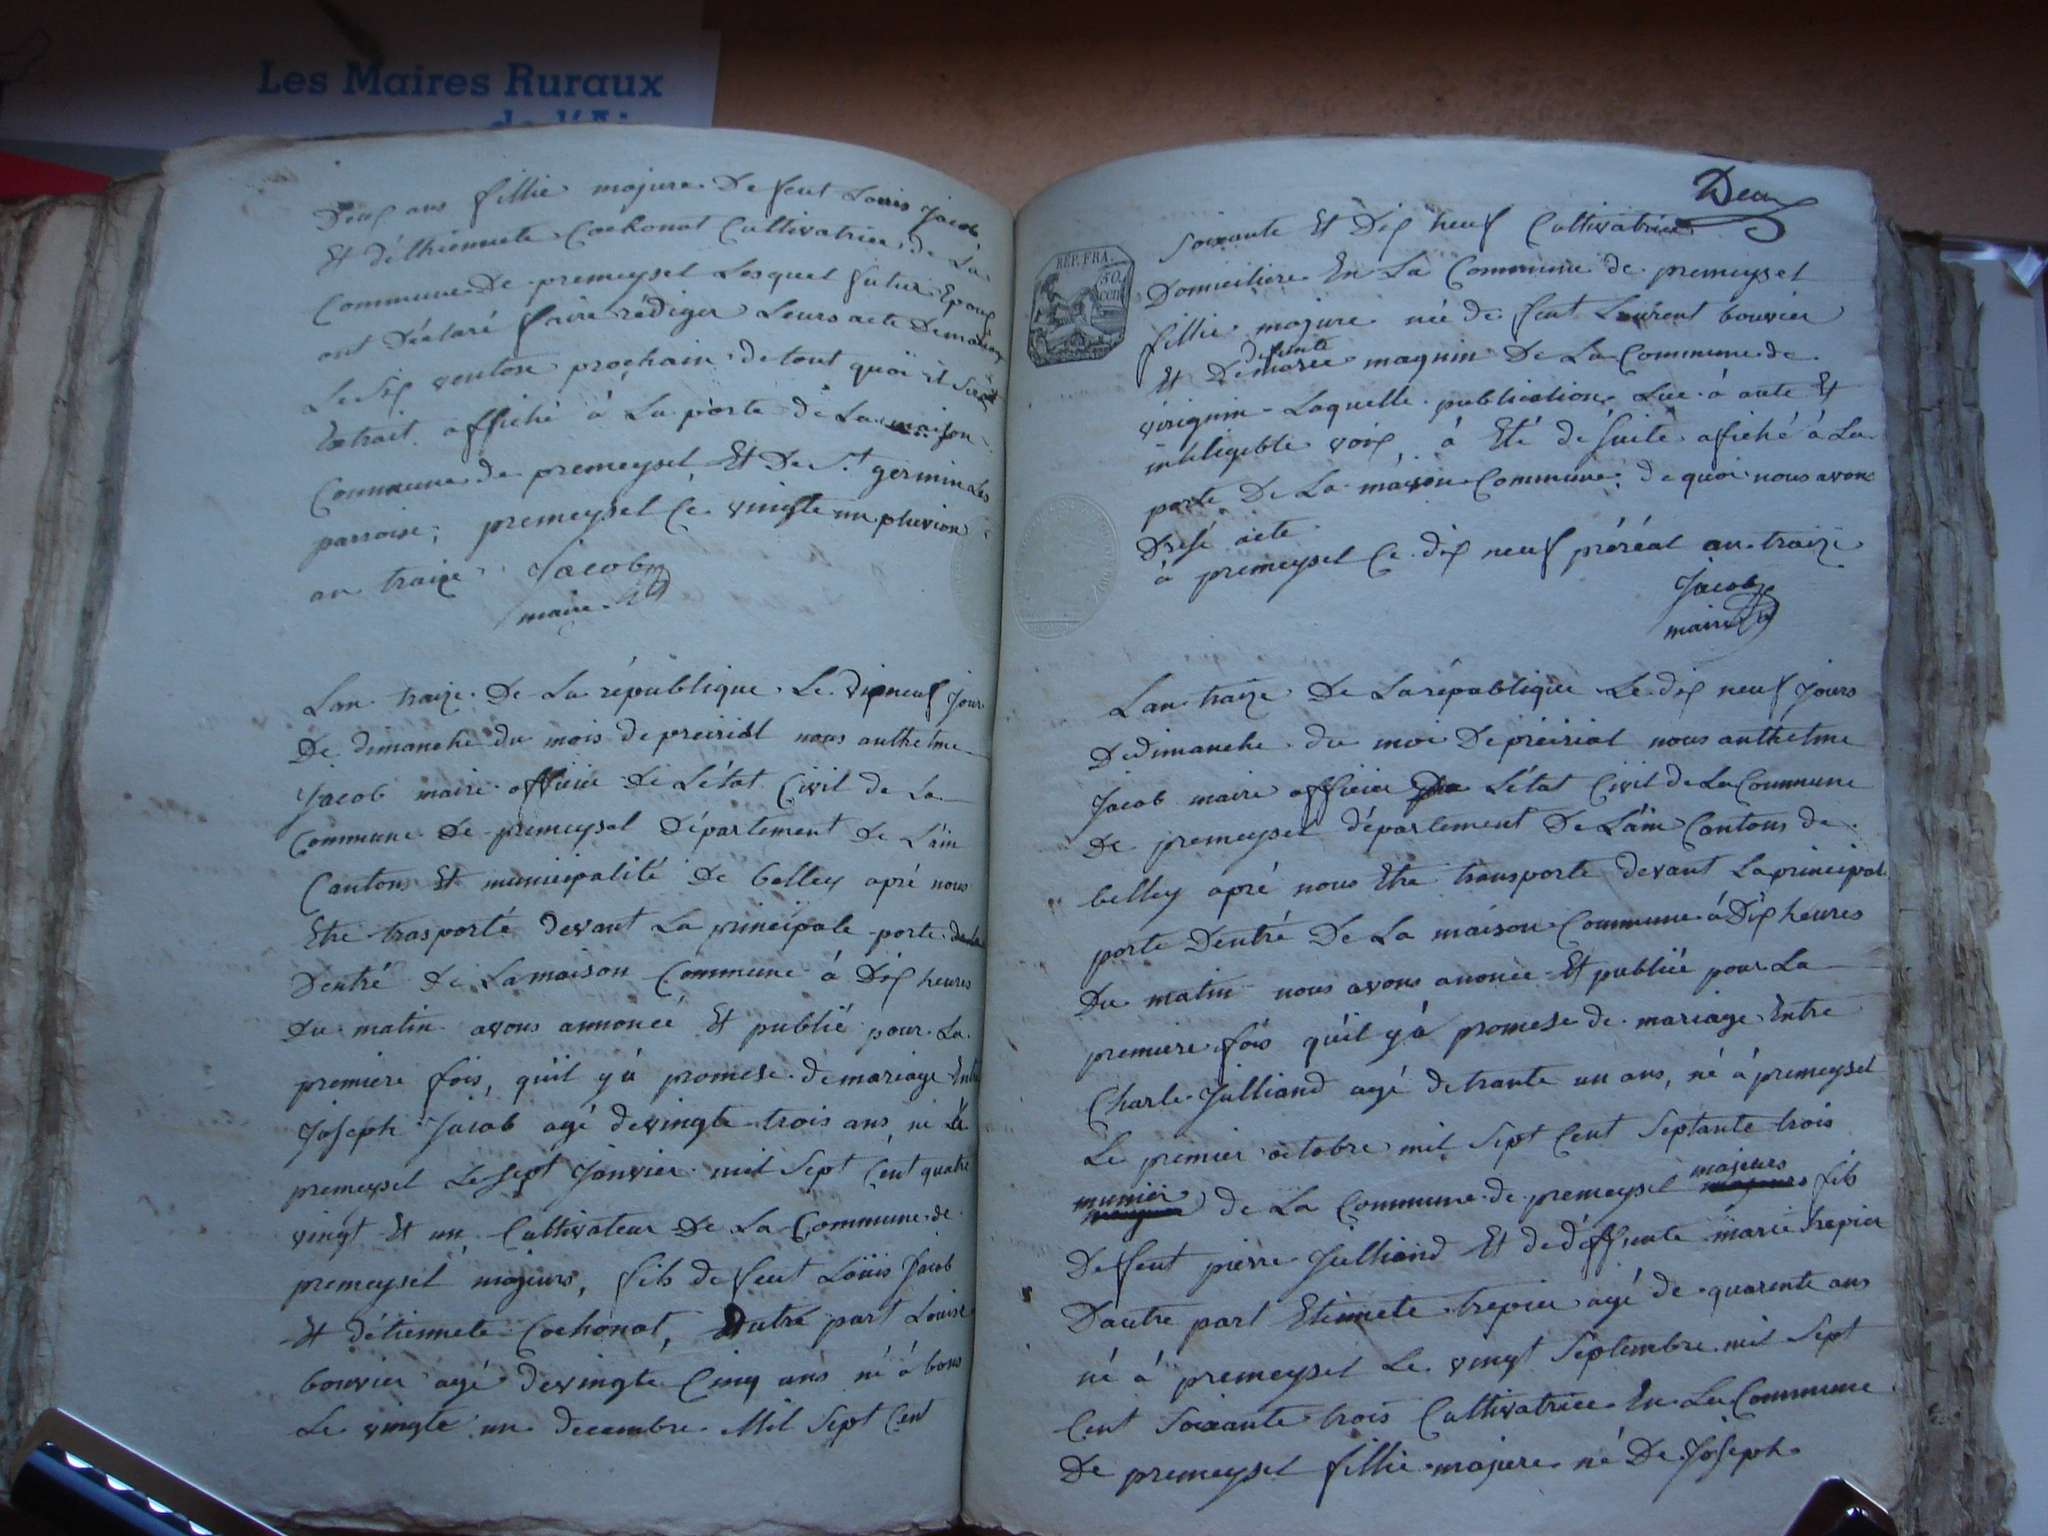 Les Maires Ruraux
de l'Ain
Deux ans fillie majure De feut Louis Jacob
Et d'éthiennete Cochonat Cultivatrice de La
Commune De premeysel Lesquel futur Epoux
ont Déclaré faire rédiger Leurs acte De mariage
Le Six ventose prochain de tout quoi il Sera
Extrait affiché à La porte de La maison
Commune de premeysel Et De St germin Les
parroise; premeysel Ce vingte un pluviose
an traize Jacob
maire
Lan traize De La république Le dixneuf Jour
De dimanche du mois de preirial nous anthelme
Jacob maire officier de L'état Civil de La
Commune De premeysel Département De L'ain
Canton Et municipalité De belley apré nous
Etre trasporté devant La principale porte
Dentré de La maison Commune à Dix heures
Du matin avons annoncé Et publié pour La
premiere fois, quil y'a promese de mariage Entre
Joseph Jacob agé de vingte trois ans né à
premeysel Le sept Janvier mil Sept Cent quatre
vingt Et un Cultivateur De La Commune de
premeysel majeurs, fils de feut Louis Jacob
Et d'étiennete Cochonat, Dautre part Louise
bouvier agé de vingte Cinq ans né à bons
Le vingte un decembre Mil Sept Cent
Deux
REP. FRA.
50
cent
Soixante Et Dix neuf Cultivatrice
Domiciliere En La Commune de premeysel
fillie majure né de feut Laurent bouvier
defunte
Et De marie magnin De La Commune de
virignin Laquelle publication Lue à aute Et
inteligible voix, à Eté de suite afiché à La
porte De La maison Commune, de quoi nous avons
Dresé acte
à premeysel Ce dix neuf préréal an traize
Jacob
maire
Lan traize De La république Le dix neuf Jours
De dimanche du moi De préirial nous anthelme
Jacob maire officier De L'état Civil de La Commune
De premeysel département De L'ain Cantons de
belley apré nous Etre transporte devant La principal
porte Dentré De La maison Commune à Dix heures
Du matin nous avons anoncé Et publiée pour La
premiere fois quil y'a promese de mariage Entre
Charle Julliand agé de trante un ans, né à premeysel
Le premier octobre mil Sept Cent Septante trois
munier de La Commune de premeysel majeurs fils
De feut pierre Julliand Et de déffunte marie trepier
Dautre part Etiennete trepier agé de quarente ans
né à premeysel Le vingt Septembre mil Sept
Cent Soixante trois Cultivatrice En La Commune
De premeysel fillie majure né De Joseph